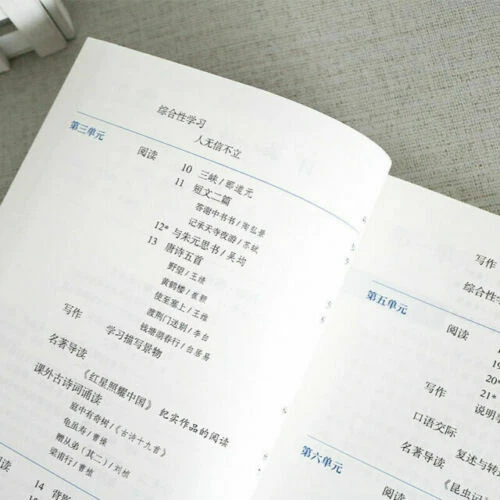 综合性学习
人无信不立
第三单元
阅读
10 三峡/郦道元
11 短文二篇
答谢中书书/陶弘景
记承天寺夜游/苏轼
12* 与朱元思书/吴均
13 唐诗五首
野望/王绩
黄鹤楼/崔颢
使至塞上/王维
渡荆门送别/李白
钱塘湖春行/白居易
写作
学习描写景物
名著导读
《红星照耀中国》 纪实作品的阅读
课外古诗词诵读
庭中有奇树/《古诗十九首》
龟虽寿/曹操
赠从弟(其二)/刘桢
梁甫行/曹植
阅读
14 背影
写作
综合性学
第五单元
阅读
19
20*
21*
写作
说明事
口语交际
复述与转
名著导读
《昆虫记
第六单元